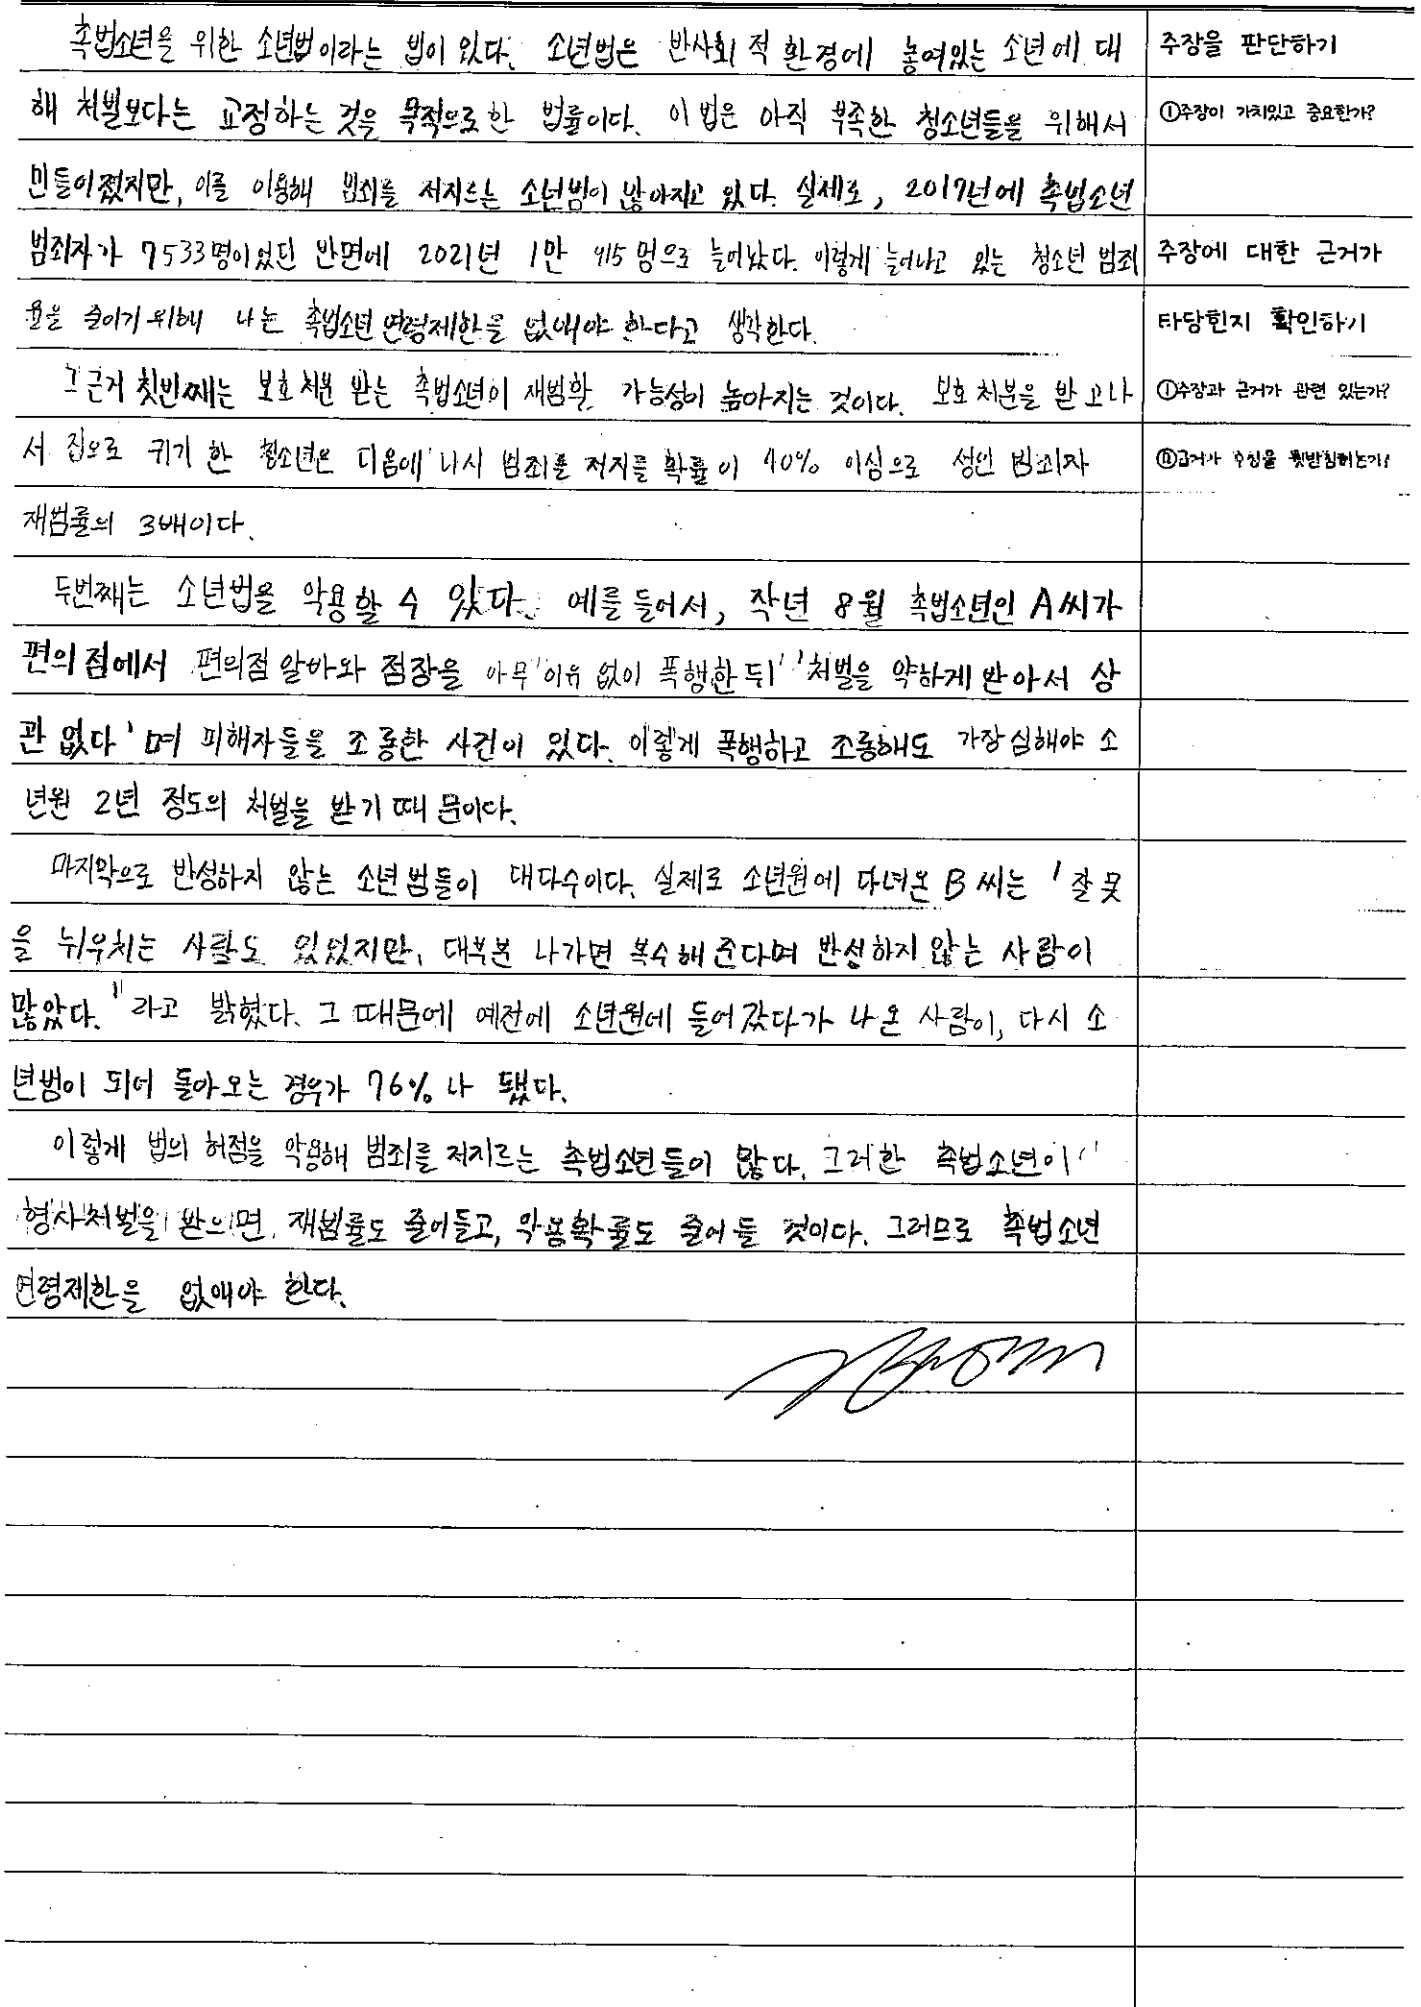 촉법소년을 위한 소년법이라는 법이 있다. 소년법은 반사회적 환경에 놓여있는 소년에 대
해 처벌보다는 교정하는 것을 목적으로 한 법률이다. 이 법은 아직 부족한 청소년들을 위해서
만들어졌지만, 이를 이용해 범죄를 저지르는 소년범이 많아지고 있다. 실제로, 2017년에 촉법소년
범죄자가 7533명이었던 반면에 2021년 1만 915명으로 늘어났다. 이렇게 늘어나고 있는 청소년 범죄
율을 줄이기 위해 나는 촉법소년 연령제한을 없애야 한다고 생각한다.
그 근거 첫번째는 보호처분 받는 촉법소년이 재범할 가능성이 높아지는 것이다. 보호처분을 받고나
서 집으로 귀가 한 청소년은 다음에 다시 범죄를 저지를 확률이 40% 이상으로 성인 범죄자
재범률의 3배이다.
두번째는 소년법을 악용할 수 있다. 예를 들어서, 작년 8월 촉법소년인 A씨가
편의점에서 편의점 알바와 점장을 아무 이유 없이 폭행한 뒤 '처벌을 약하게 받아서 상
관 없다'며 피해자들을 조롱한 사건이 있다. 이렇게 폭행하고 조롱해도 가장 심해야 소
년원 2년 정도의 처벌을 받기 때문이다.
마지막으로 반성하지 않는 소년범들이 대다수이다. 실제로 소년원에 다녀온 B씨는 '잘못
을 뉘우치는 사람도 있었지만, 대부분 나가면 복수해 준다며 반성하지 않는 사람이
많았다.'라고 밝혔다. 그 때문에 예전에 소년원에 들어갔다가 나온 사람이, 다시 소
년범이 되어 돌아오는 경우가 76%나 됐다.
이렇게 법의 허점을 악용해 범죄를 저지르는 촉법소년들이 많다. 그러한 촉법소년이
형사처벌을 받으면 재범률도 줄어들고, 악용확률도 줄어들 것이다. 그러므로 촉법소년
연령제한을 없애야 한다.
주장을 판단하기
①주장이 가치있고 중요한가?
주장에 대한 근거가
타당한지 확인하기
①주장과 근거가 관련 있는가?
②근거가 주장을 뒷받침하는가?